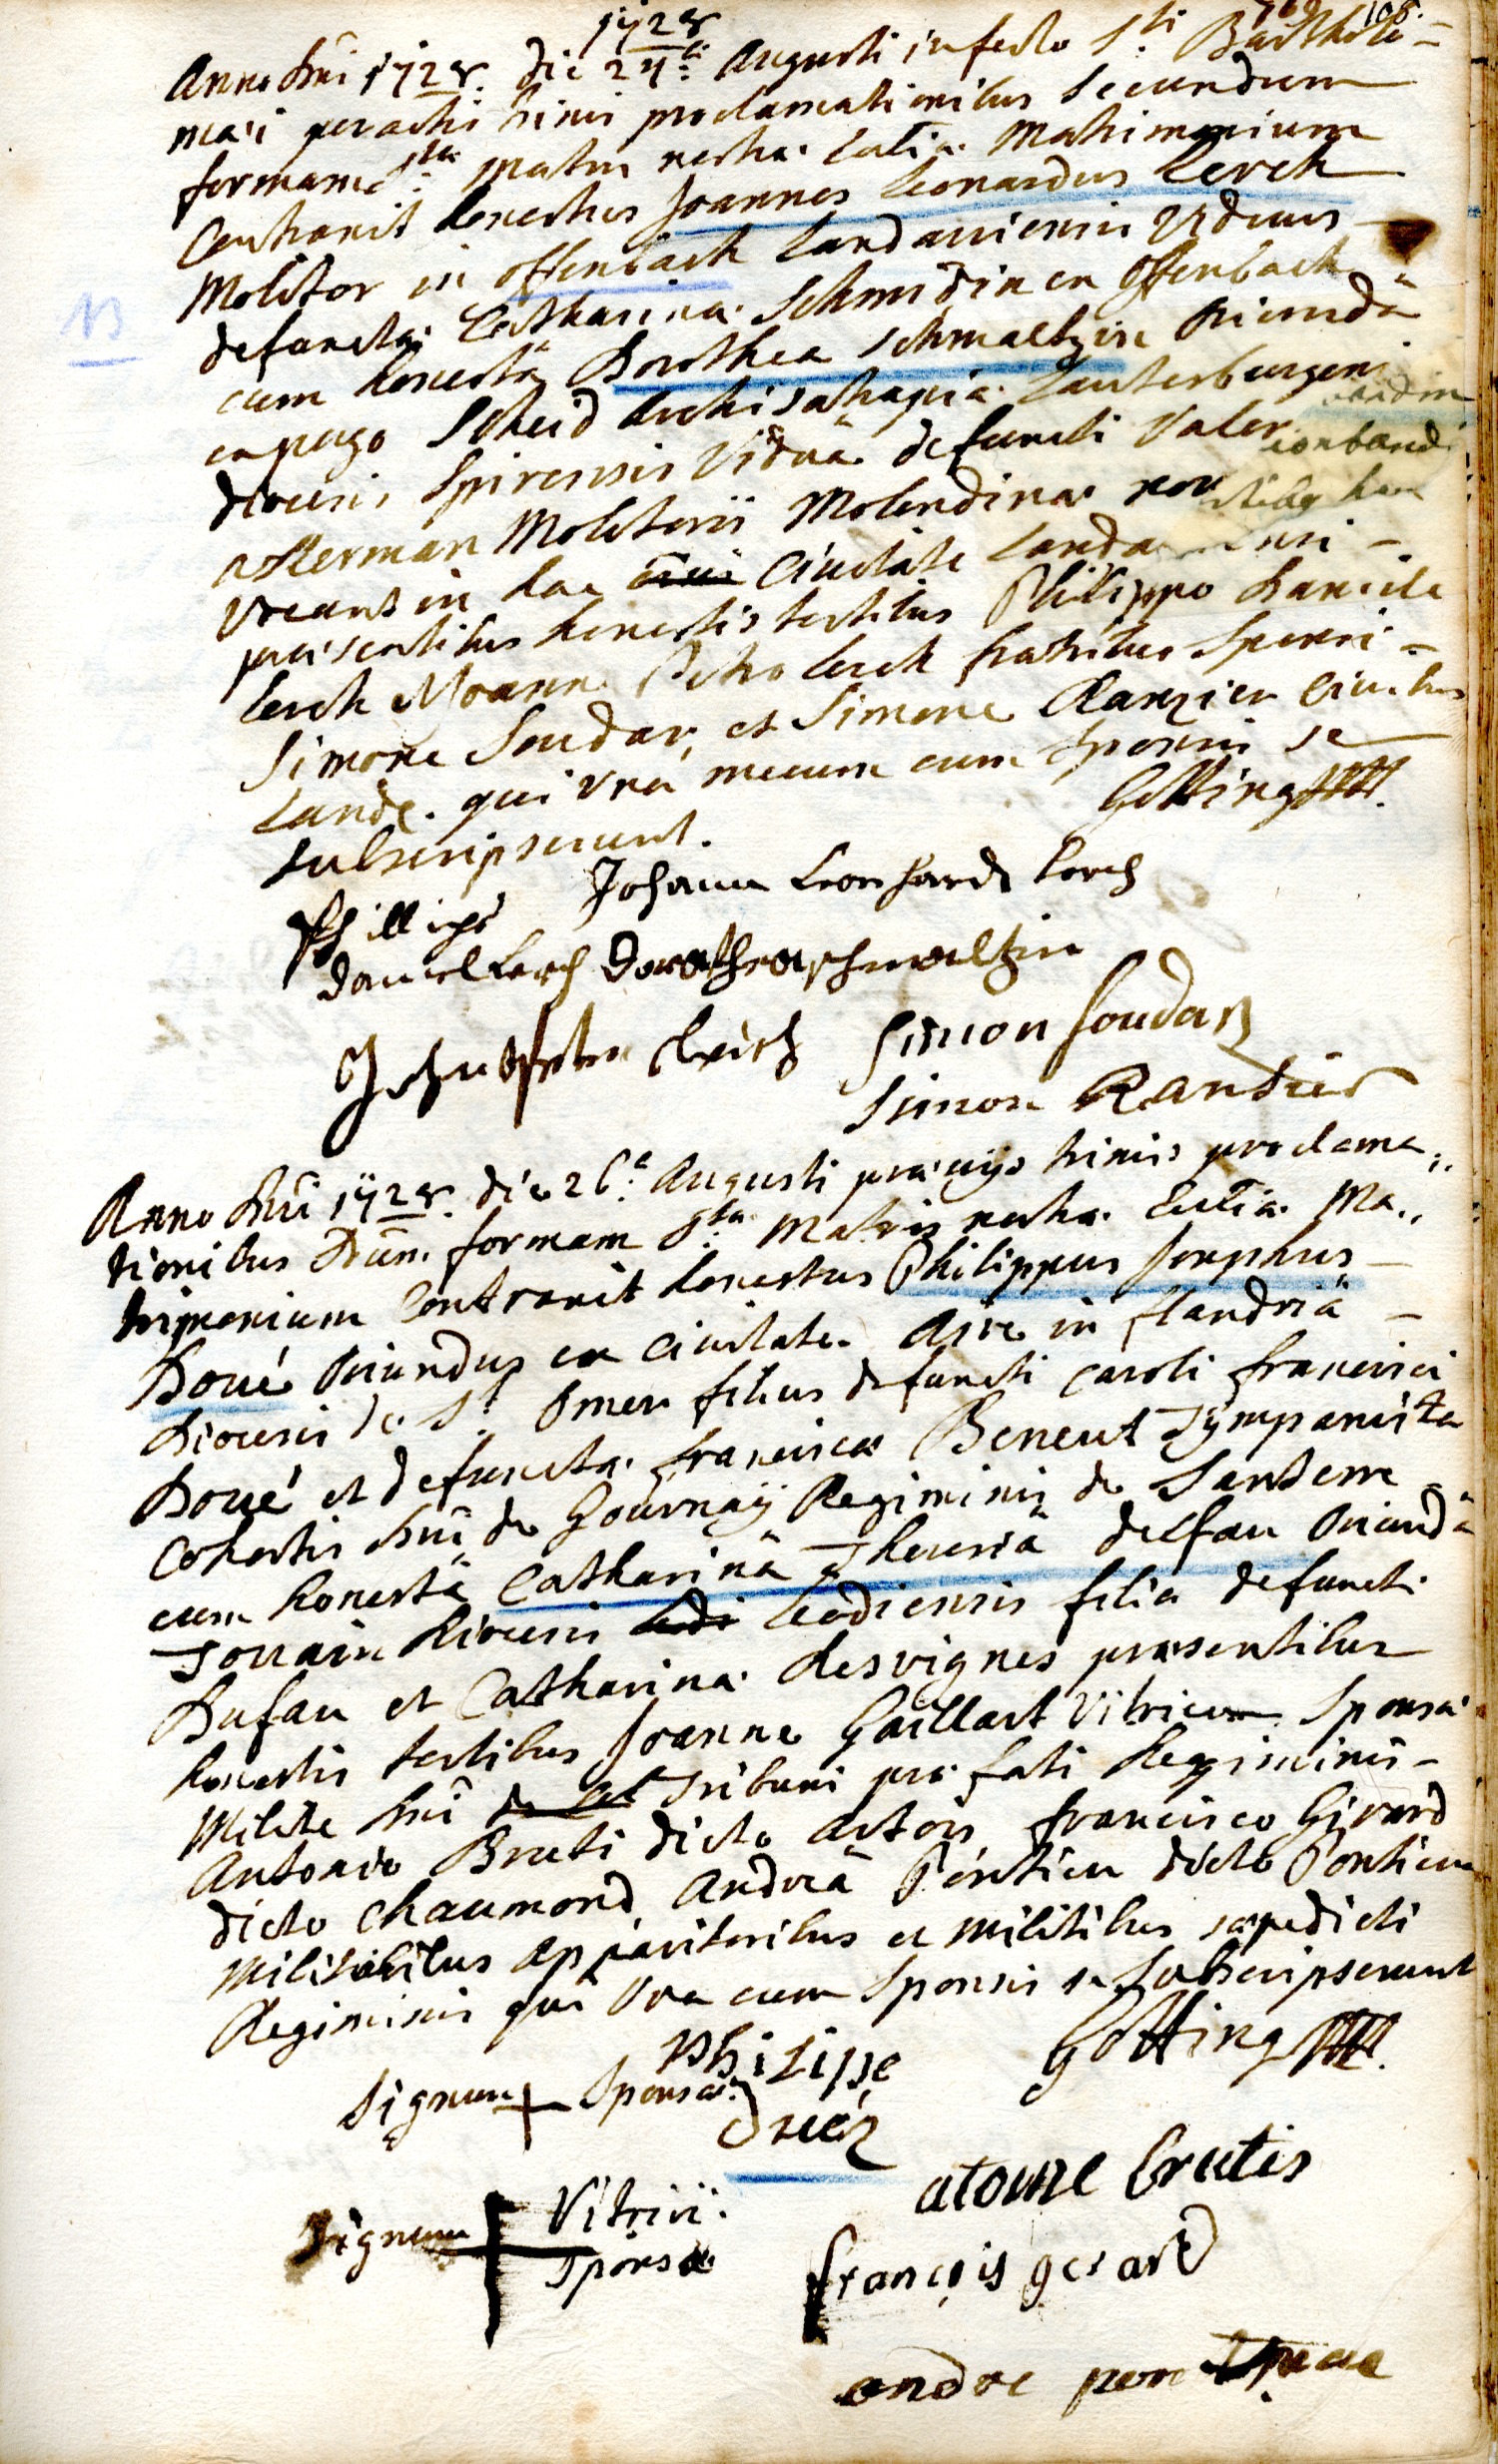 1728
108.
Anno Dni 1728. die 24ta. Augusti in festo Sti Bartholo-
mæi peractis trinis proclamationibus secundum
formam Stæ. Matris nostræ Ecclæ. Matrimonium
Contraxit honestus Joannes Leonardus Lerch
Molitor in Offenbach Landauiensis Viduus
defunctæ Catharinæ Schmidin ex Offenbach
cum honestâ Dorothea Schmaltzin oriundâ
ex pago Scheid Archisatrapiæ Lauterburgensi
diœcesis Spirensis Viduâ defuncti Valen
Akerman Molitoris Molendinæ
vocant in hac Ciuitate Landa
præsentibus honestis testibus Philippo Daniele
Lerch Joanne Petro Lerch fratribus Sponsi -
Simone Soudar, et Simone Ranzier Ciuibus
Landæ. qui unà mecum cum Sponsis se
subscripserunt.
Götting
Johann Leonhardt Lerch
Phillips
Daniel Lerch Dorathea schmaltzin
Johan Peter Lerch
Simon Soudar
Simon Ranzier
Anno Dni 1728. die 26a. Augusti præuijs trinis proclama-
tionibus Scdum. formam Stæ Matris nostræ Ecclæ Ma-
trimonium Contraxit honestus Philippus Josephus
Doué Oriundus ex Ciuitate Aire in flandriâ -
Diocesis de St Omer filius defuncti Caroli francisci
Doué et defunctæ franciscæ Beneut Tympanista
Cohortis Dni de Gournaÿ Regiminis de Santerre
cum honestâ Catharinâ Theresiâ delfau Oriundâ
Torrain Diocesis Leodiensis filia defuncti
Dufau et Catharinæ desvignes præsentibus
honestis testibus Joanne Gaillart Vitrico Sponsæ
Milite Dni Tribuni præfati Regiminis -
Antonio Bruti dicto Artois francisco Girard
dicto Chaumond, Andreâ Pontieu dicto Pontieu
apparitoribus et militibus sæpedicti
Regiminis qui Una cum Sponsis se Subscripserunt
Götting
Philipe
Signum + Sponsæ
Signum + Vitrici
Sponsæ
atoine brutis
françois gerard
andre